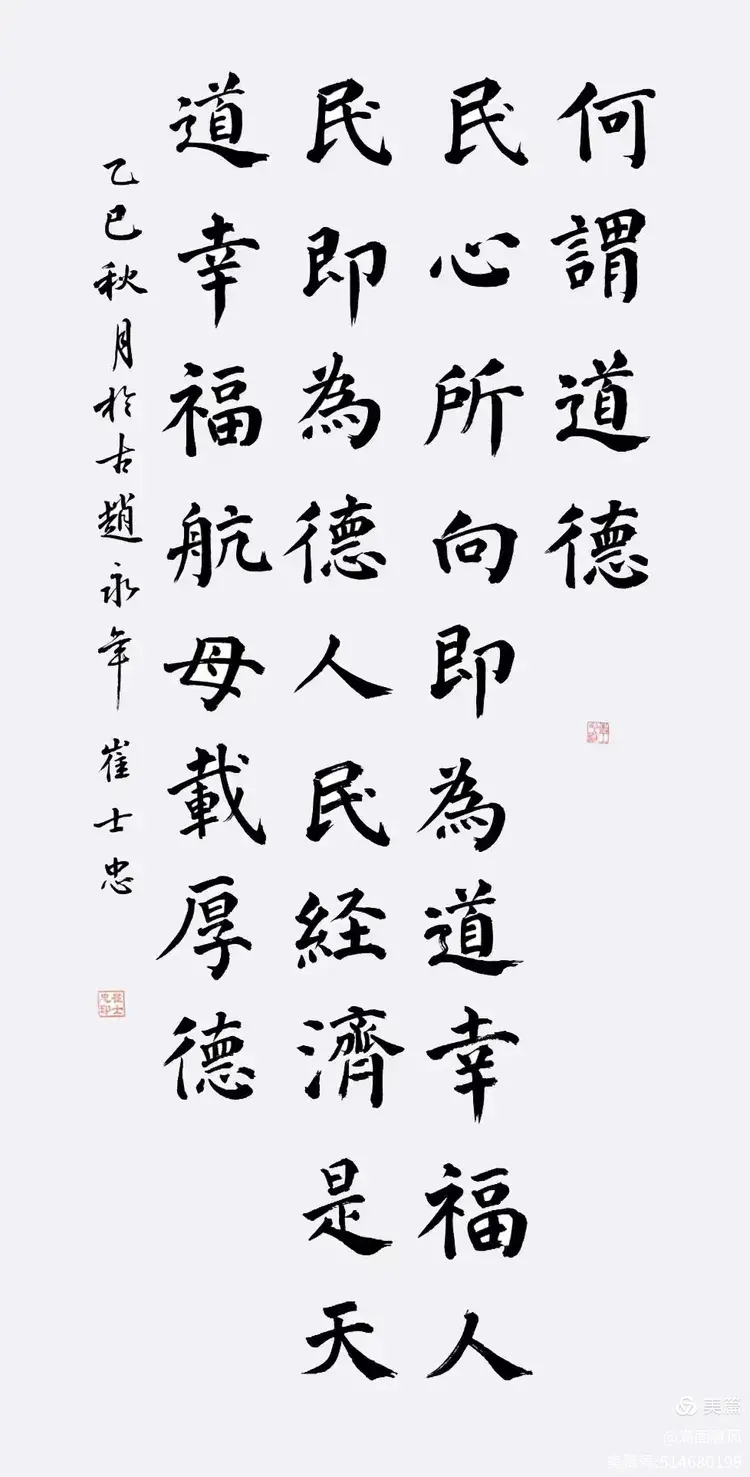 何謂道德
民心所向即為道幸福人
民即為德人民経濟是天
道幸福航母載厚德
乙巳秋月於古趙永年崔士忠
崔士忠印
美篇